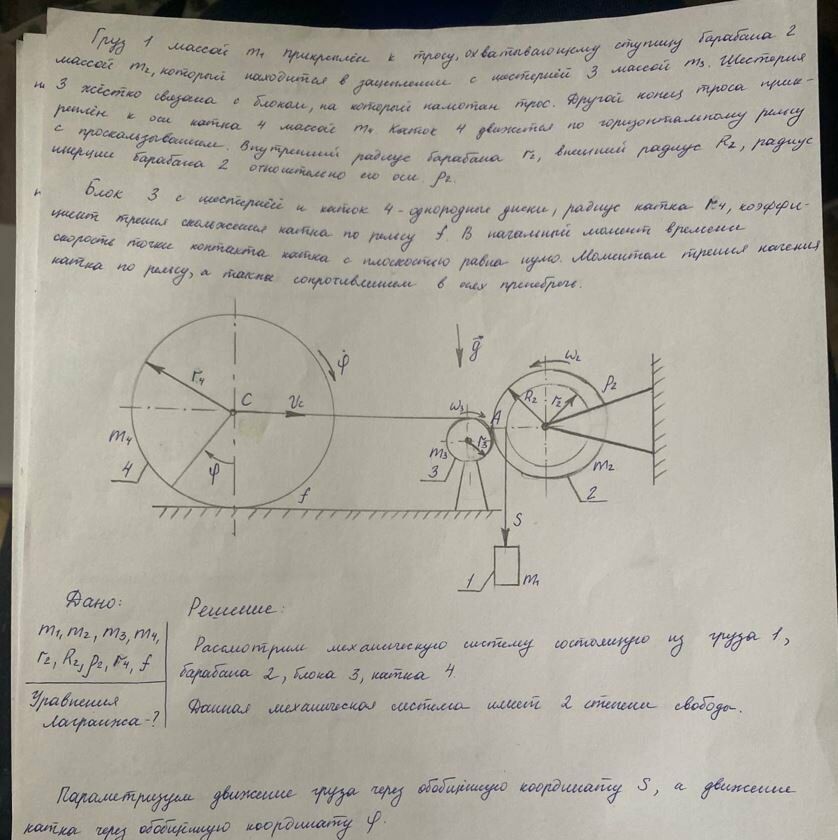 Груз 1 массой m₁ прикреплён к тросу, охватывающему ступицу барабана 2
массой m₂, который находится в зацеплении с шестернёй 3 массой m₃. Шестерня
3 жёстко связана с блоком, на который намотан трос. Другой конец троса прик-
реплён к оси катка 4 массой m₄. Каток 4 движется по горизонтальному рельсу
с проскальзыванием. Внутренний радиус барабана r₂, внешний радиус R₂, радиус
инерции барабана 2 относительно его оси ρ₂.
Блок 3 с шестернёй и каток 4 - однородные диски, радиус катка r₄, коэффи-
циент трения скольжения катка по рельсу f. В начальный момент времени
скорость точки контакта катка с плоскостью равна нулю. Моментом трения качения
катка по рельсу, а также сопротивлением в осях пренебречь.
r₄
C
V_C
φ̇
φ
m₄
4
f
g⃗
ω₃
A
r₃
m₃
3
ω₂
R₂
r₂
ρ₂
m₂
2
S
1
m₁
Дано:
m₁, m₂, m₃, m₄,
r₂, R₂, ρ₂, r₄, f
Уравнения
Лагранжа - ?
Решение:
Рассмотрим механическую систему состоящую из груза 1,
барабана 2, блока 3, катка 4.
Данная механическая система имеет 2 степени свободы.
Параметризуем движение груза через обобщённую координату S, а движение
катка через обобщённую координату φ.